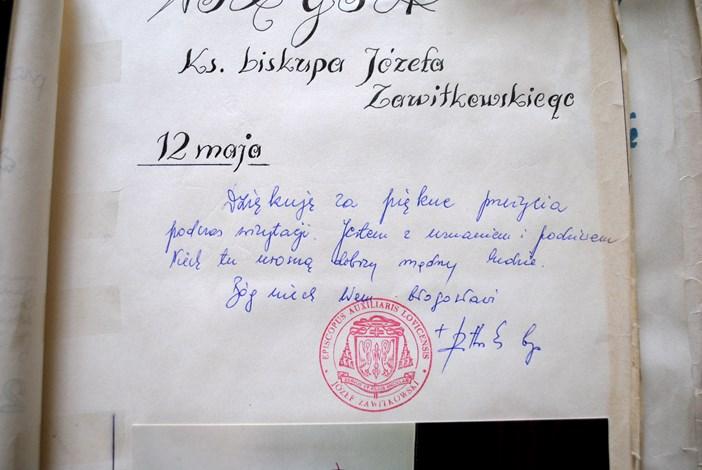 Ks. biskupa Józefa
Zawitkowskiego
12 maja
Dziękuję za piękne przeżycia
podczas wizytacji. Jestem z uznaniem i podziwem
Niech tu wrosną dobrzy mądry ludzie.
Bóg niech Wam błogosławi
+ bp
EPISCOPUS AUXILIARIS LOVICENSIS
JÓZEF ZAWITKOWSKI